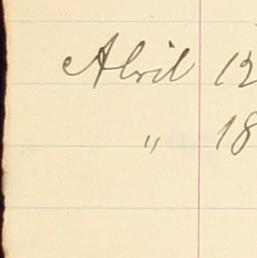 April 12
" 18